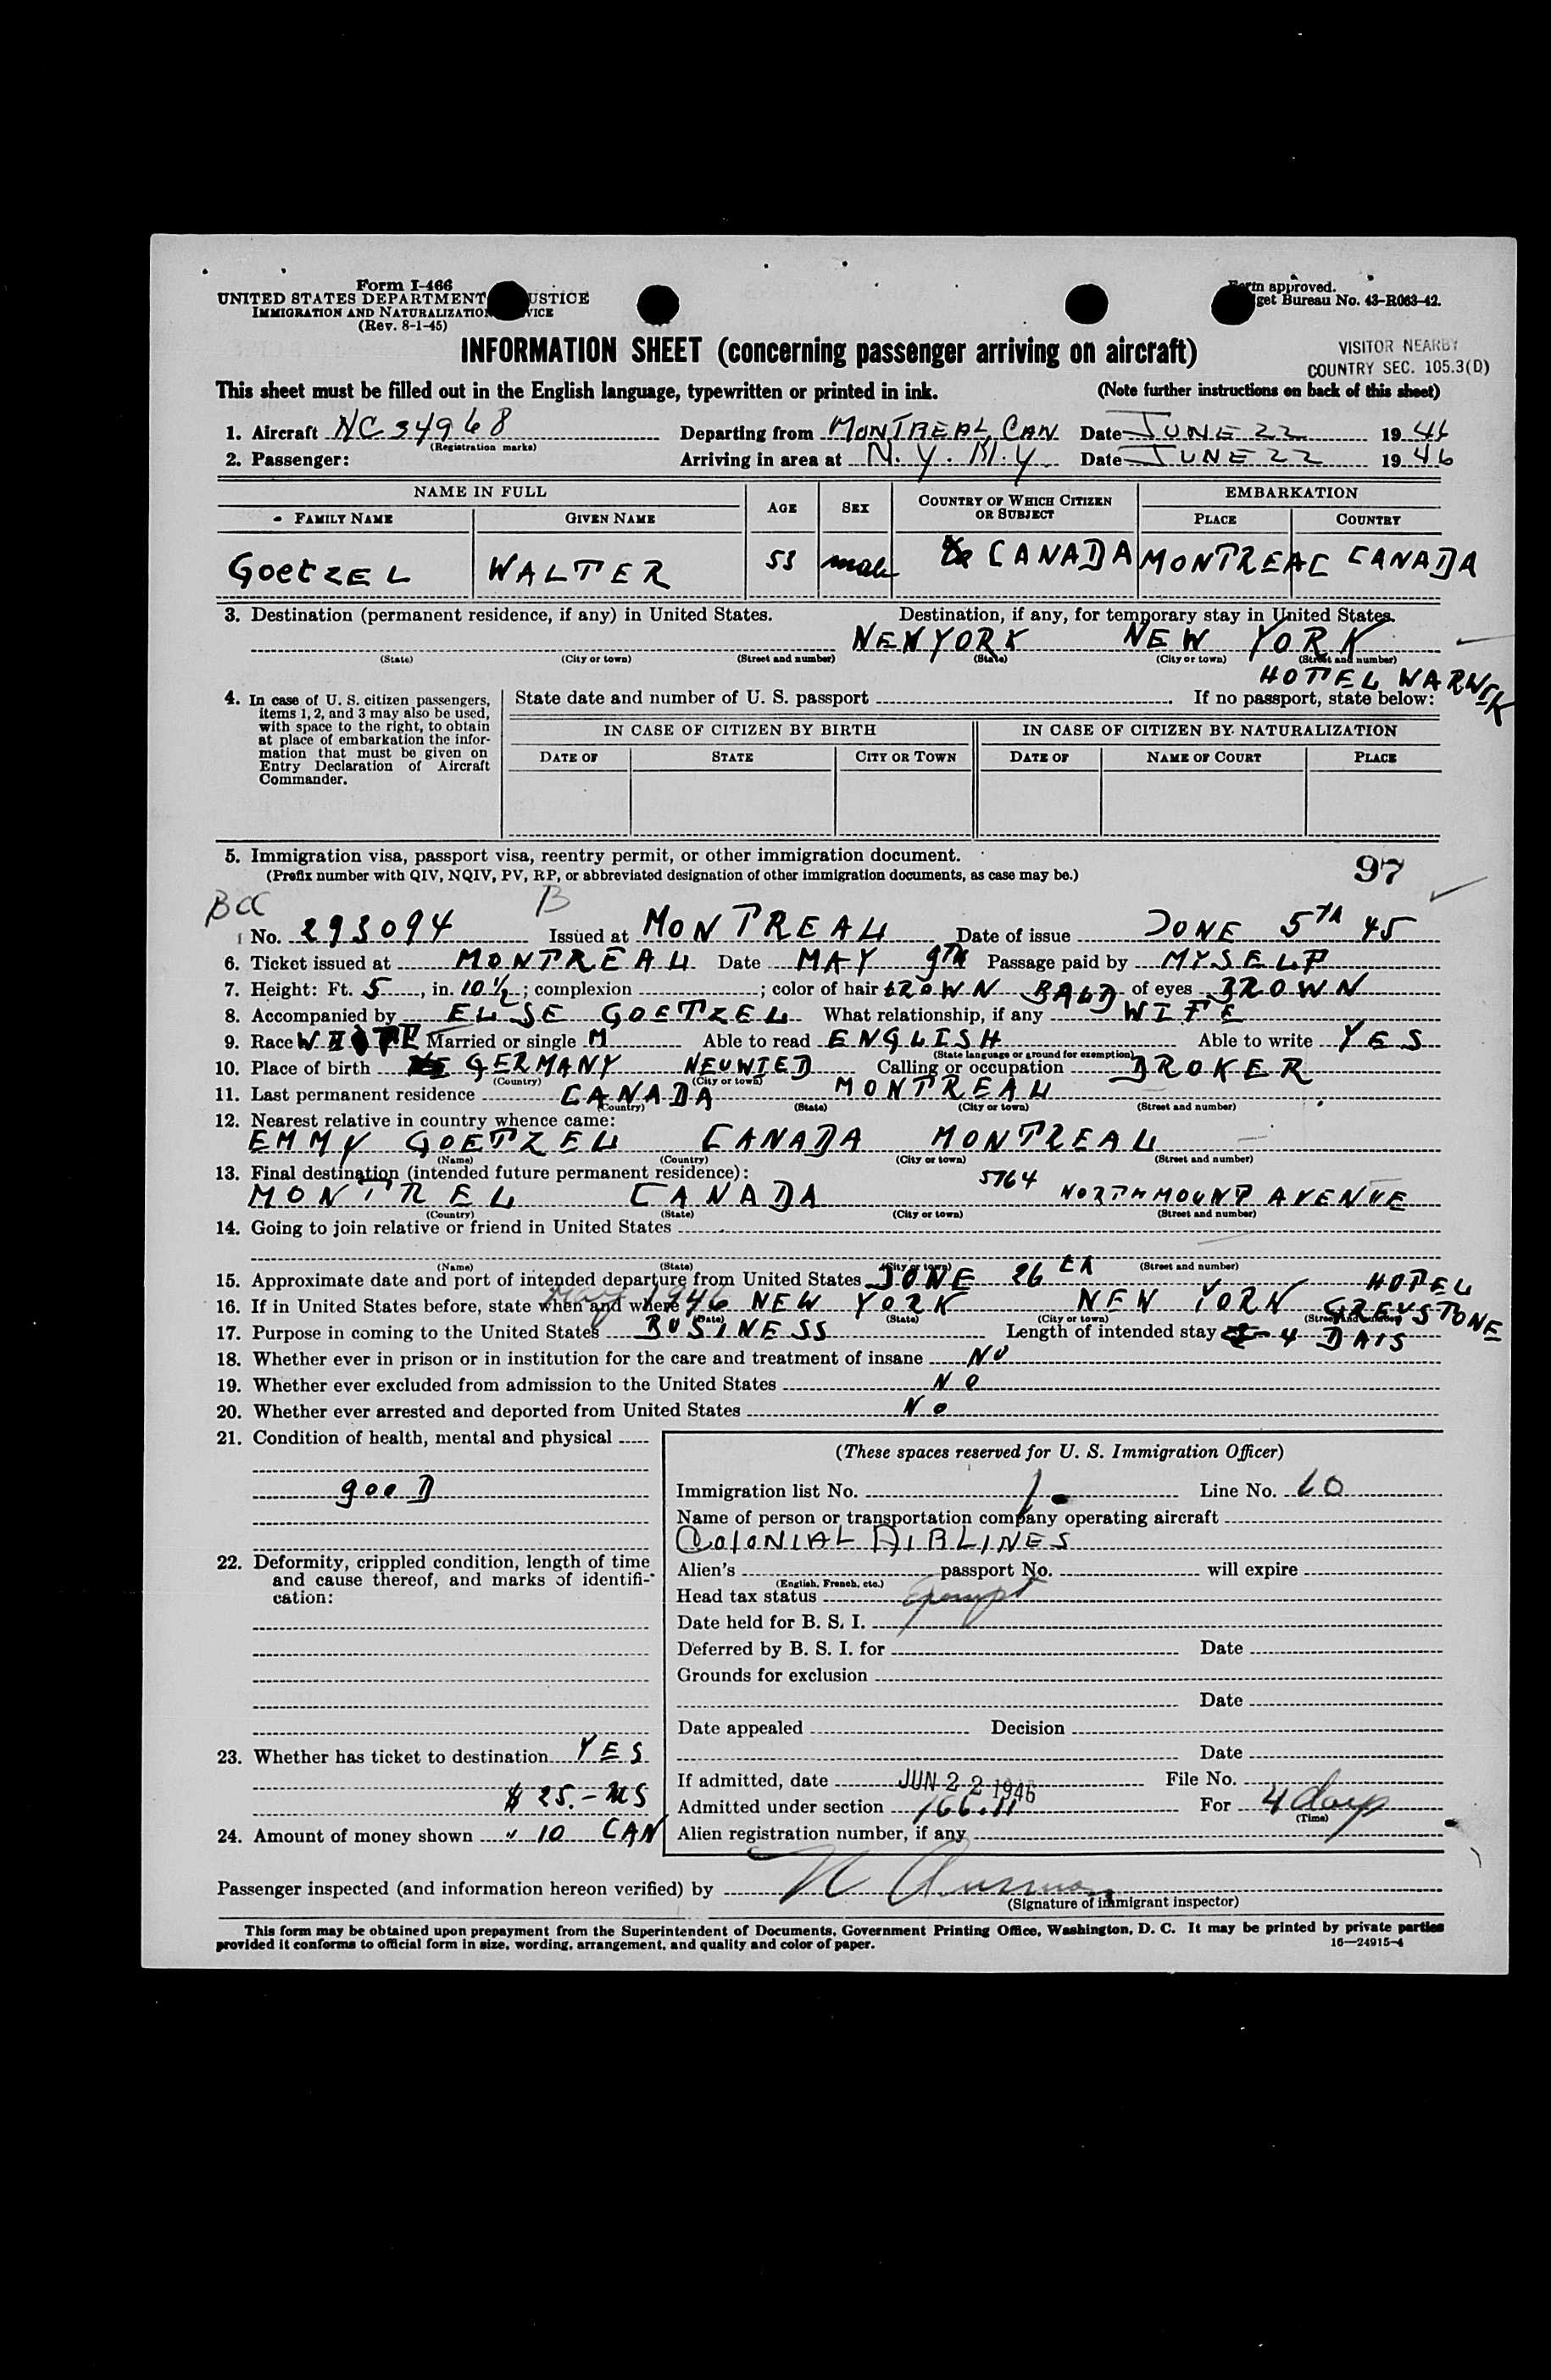 Form I-466
UNITED STATES DEPARTMENT USTICE
IMMIGRATION AND NATURALIZATION VICE
(Rev. 8-1-45)
Form approved.
get Bureau No. 43-R063-42.
INFORMATION SHEET (concerning passenger arriving on aircraft)
VISITOR NEARBY
COUNTRY SEC. 105.3(D)
This sheet must be filled out in the English language, typewritten or printed in ink. (Note further instructions on back of this sheet)
1. Aircraft NC 34968 Departing from MONTREAL, CAN Date JUNE 22 1946
(Registration marks)
2. Passenger: Arriving in area at N.Y. N.Y. Date JUNE 22 1946
NAME IN FULL AGE SEX COUNTRY OF WHICH CITIZEN OR SUBJECT EMBARKATION
FAMILY NAME GIVEN NAME PLACE COUNTRY
GOETZEL WALTER 53 male CANADA MONTREAL CANADA
3. Destination (permanent residence, if any) in United States. Destination, if any, for temporary stay in United States.
NEW YORK NEW YORK
(State) (City or town) (Street and number) (State) (City or town) (Street and number)
HOTEL WARWICK
4. In case of U. S. citizen passengers, items 1, 2, and 3 may also be used, with space to the right, to obtain at place of embarkation the information that must be given on Entry Declaration of Aircraft Commander.
State date and number of U. S. passport If no passport, state below:
IN CASE OF CITIZEN BY BIRTH IN CASE OF CITIZEN BY NATURALIZATION
DATE OF STATE CITY OR TOWN DATE OF NAME OF COURT PLACE
5. Immigration visa, passport visa, reentry permit, or other immigration document. 97
(Prefix number with QIV, NQIV, PV, RP, or abbreviated designation of other immigration documents, as case may be.)
BCC B
No. 293094 Issued at MONTREAL Date of issue JUNE 5TH 45
6. Ticket issued at MONTREAL Date MAY 9TH Passage paid by MYSELF
7. Height: Ft. 5, in. 10 1/2; complexion ; color of hair BROWN BALD of eyes BROWN
8. Accompanied by ELSE GOETZEL What relationship, if any WIFE
9. Race WHITE Married or single M Able to read ENGLISH Able to write YES
(State language or ground for exemption)
10. Place of birth GERMANY NEUWIED Calling or occupation BROKER
(Country) (City or town)
11. Last permanent residence CANADA MONTREAL
(Country) (State) (City or town) (Street and number)
12. Nearest relative in country whence came:
EMMY GOETZEL CANADA MONTREAL
(Name) (Country) (City or town) (Street and number)
13. Final destination (intended future permanent residence):
MONTREL CANADA 5764 NORTHMOUNT AVENUE
(Country) (State) (City or town) (Street and number)
14. Going to join relative or friend in United States
(Name) (State) (City or town) (Street and number)
15. Approximate date and port of intended departure from United States JUNE 26th
16. If in United States before, state when and where May 1946 NEW YORK NEW YORK HOTEL GREYSTONE
(Date) (State) (City or town) (Street and number)
17. Purpose in coming to the United States BUSINESS Length of intended stay 4 DAIS
18. Whether ever in prison or in institution for the care and treatment of insane NO
19. Whether ever excluded from admission to the United States NO
20. Whether ever arrested and deported from United States NO
21. Condition of health, mental and physical
gooD
22. Deformity, crippled condition, length of time and cause thereof, and marks of identification:
23. Whether has ticket to destination YES
$ 25.- US
24. Amount of money shown " 10 CAN
(These spaces reserved for U. S. Immigration Officer)
Immigration list No. 1 Line No. 10
Name of person or transportation company operating aircraft
COLONIAL AIRLINES
Alien's passport No. will expire
(English, French, etc.)
Head tax status Exempt
Date held for B. S. I.
Deferred by B. S. I. for Date
Grounds for exclusion
Date
Date appealed Decision
Date
If admitted, date JUN 22 1946 File No.
Admitted under section 166.11 For 4 days
(Time)
Alien registration number, if any
Passenger inspected (and information hereon verified) by
(Signature of immigrant inspector)
This form may be obtained upon prepayment from the Superintendent of Documents, Government Printing Office, Washington, D. C. It may be printed by private parties
provided it conforms to official form in size, wording, arrangement, and quality and color of paper. 16—24915-4